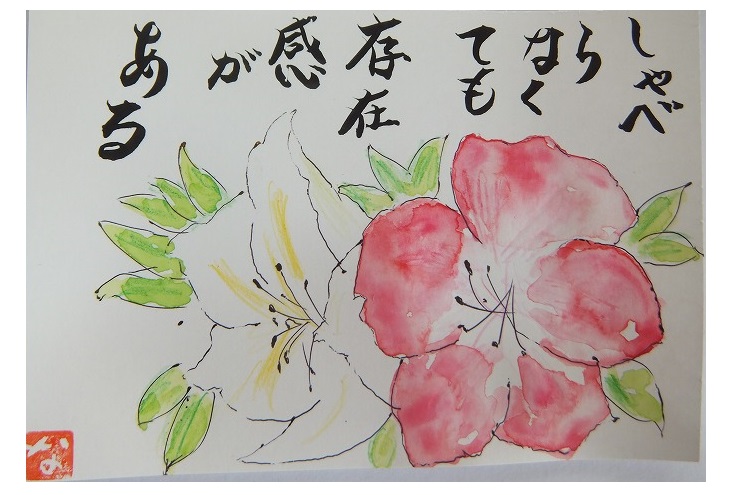 しゃべ
ら
なく
ても
存在
感
が
ある
な